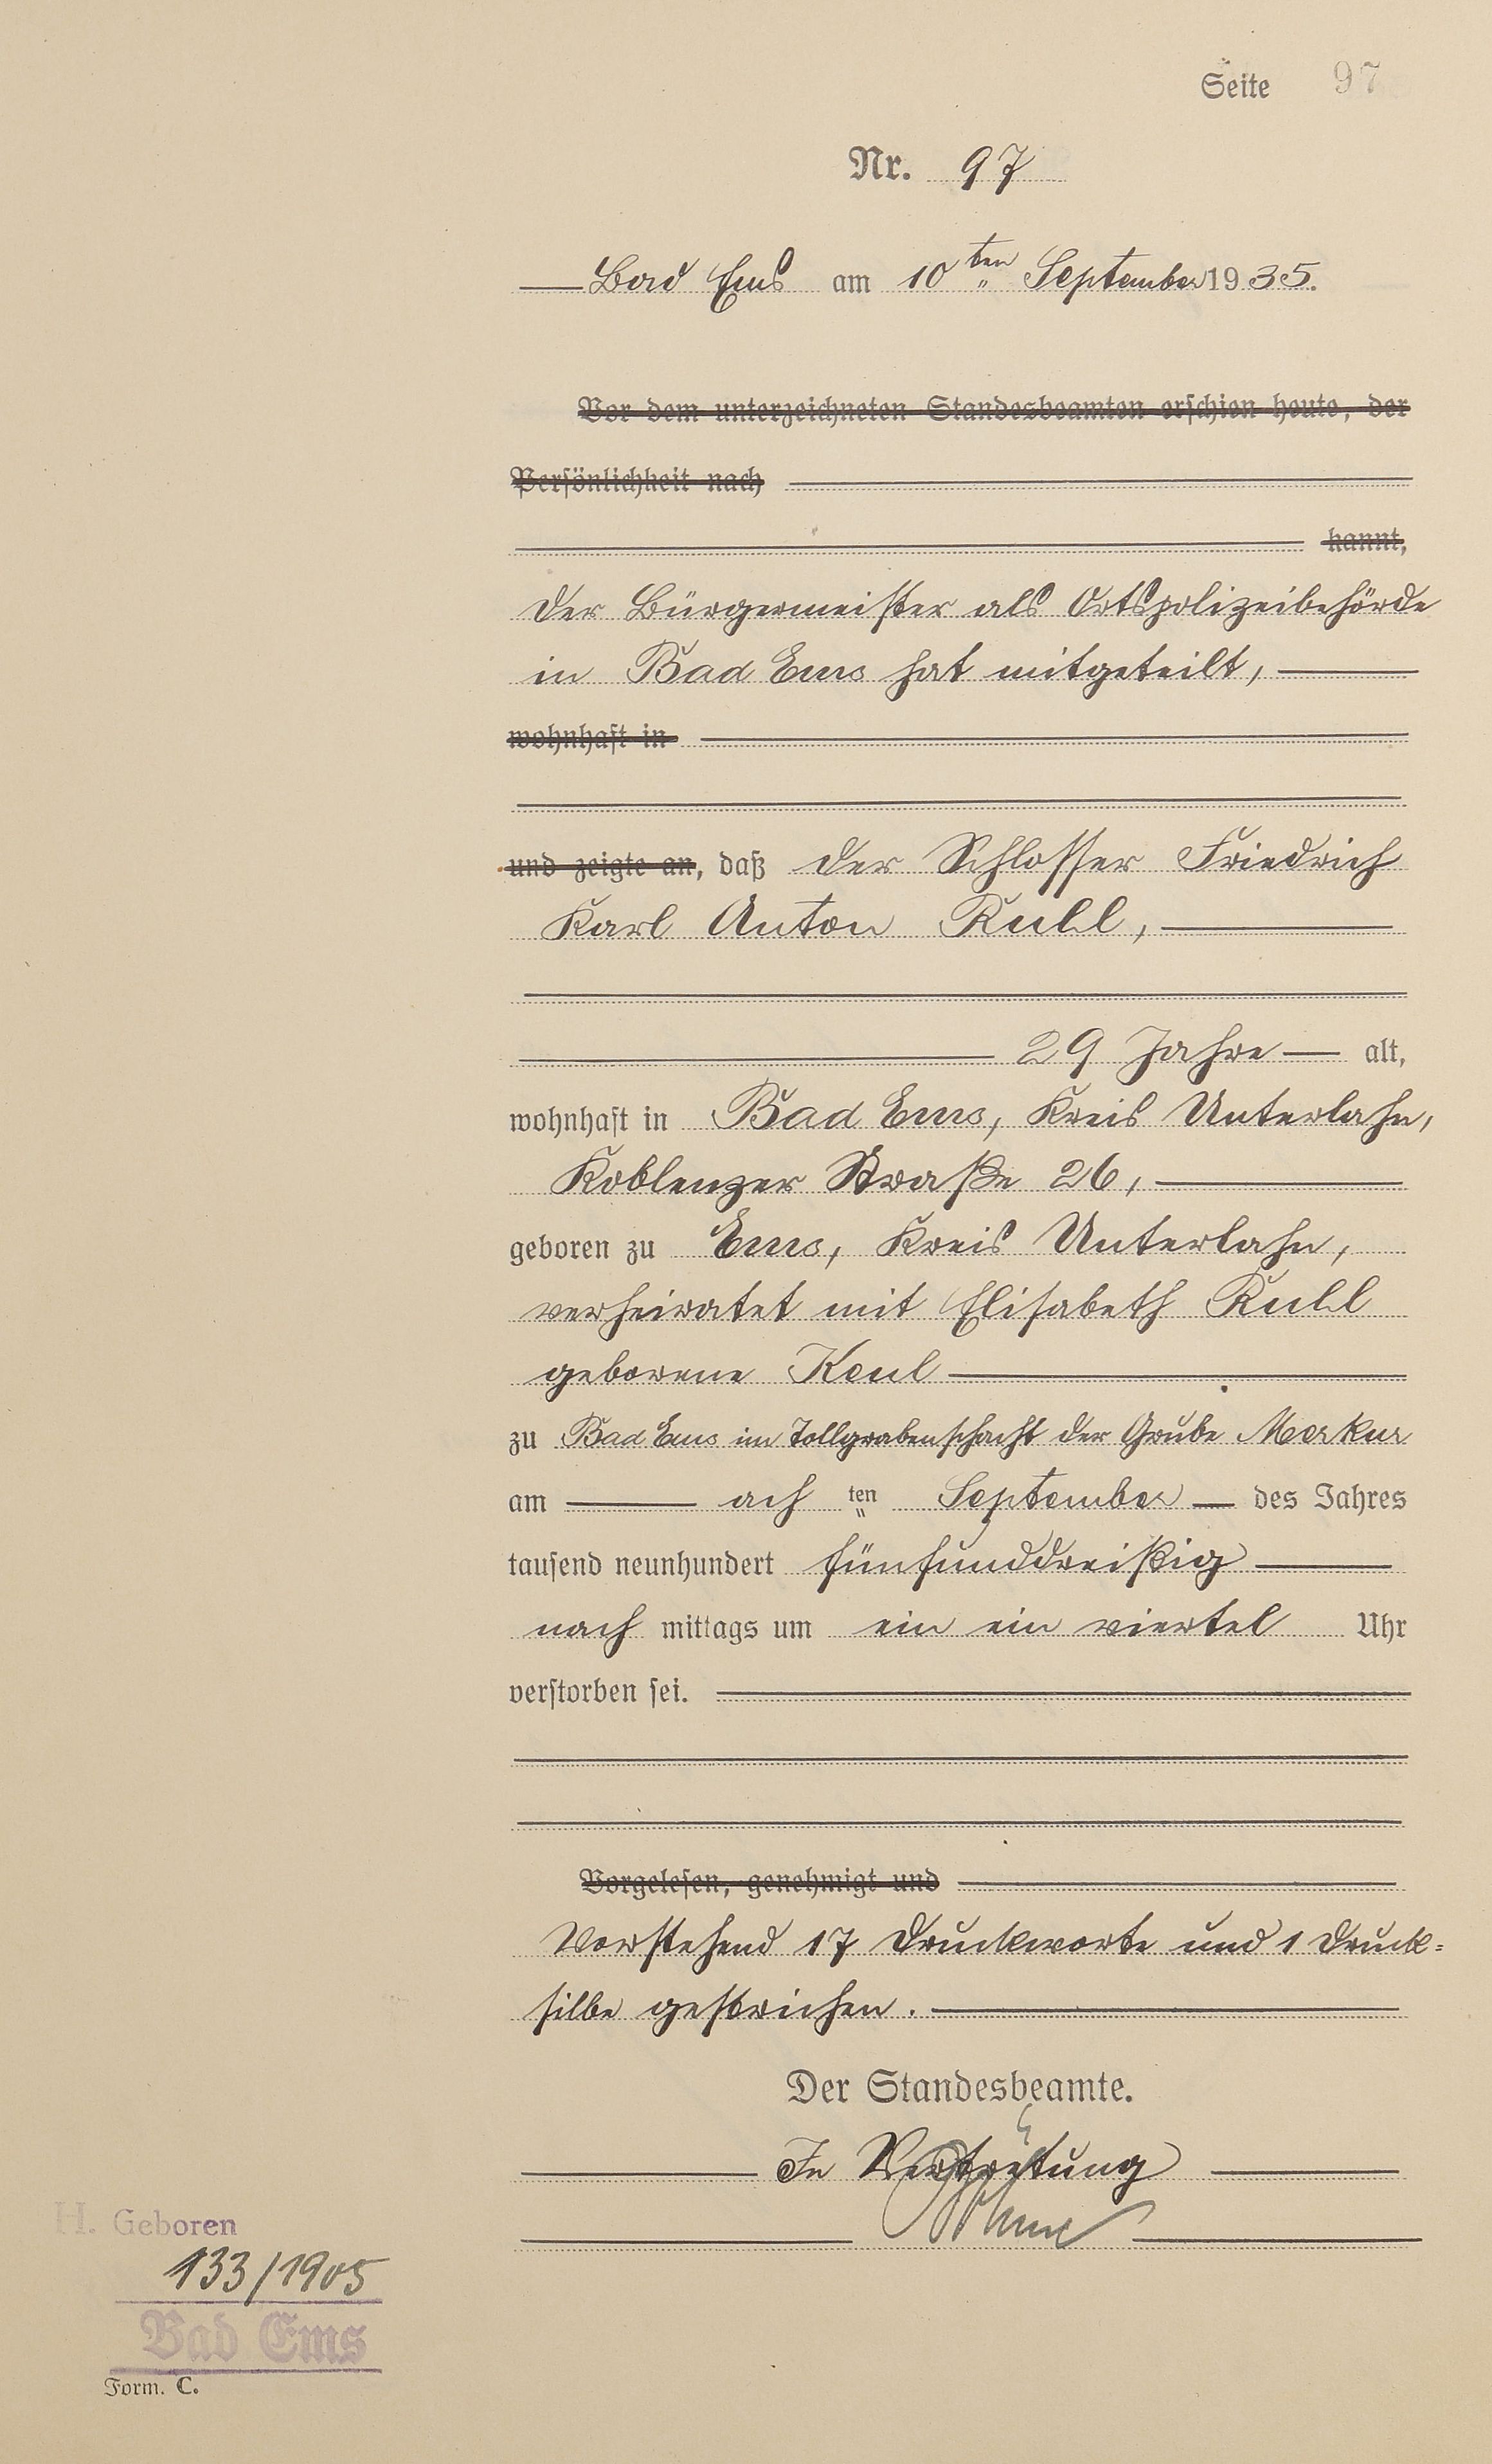 Seite 97
Nr. 97
Bad Ems am 10ten September 1935.
Vor dem unterzeichneten Standesbeamten erschien heute, der
Persönlichkeit nach
kannt,
der Bürgermeister als Ortspolizeibehörde
in Bad Ems hat mitgeteilt,
wohnhaft in
und zeigte an, daß der Schlosser Friedrich
Karl Anton Kull,
29 Jahre alt,
wohnhaft in Bad Ems, Kreis Unterlahn,
Koblenzer Straße 26,
geboren zu Ems, Kreis Unterlahn,
verheiratet mit Elisabeth Kull
geborene Keul
zu Bad Ems im Tollgrabenschacht der Grube Merkur
am ach ten September des Jahres
tausend neunhundert fünfunddreißig
nach mittags um ein ein viertel Uhr
verstorben sei.
Vorgelesen, genehmigt und
Vorstehend 17 Druckworte und 1 Druck=
silbe gestrichen.
Der Standesbeamte.
In Vertretung
H. Geboren
133/1905
Bad Ems
Form. C.